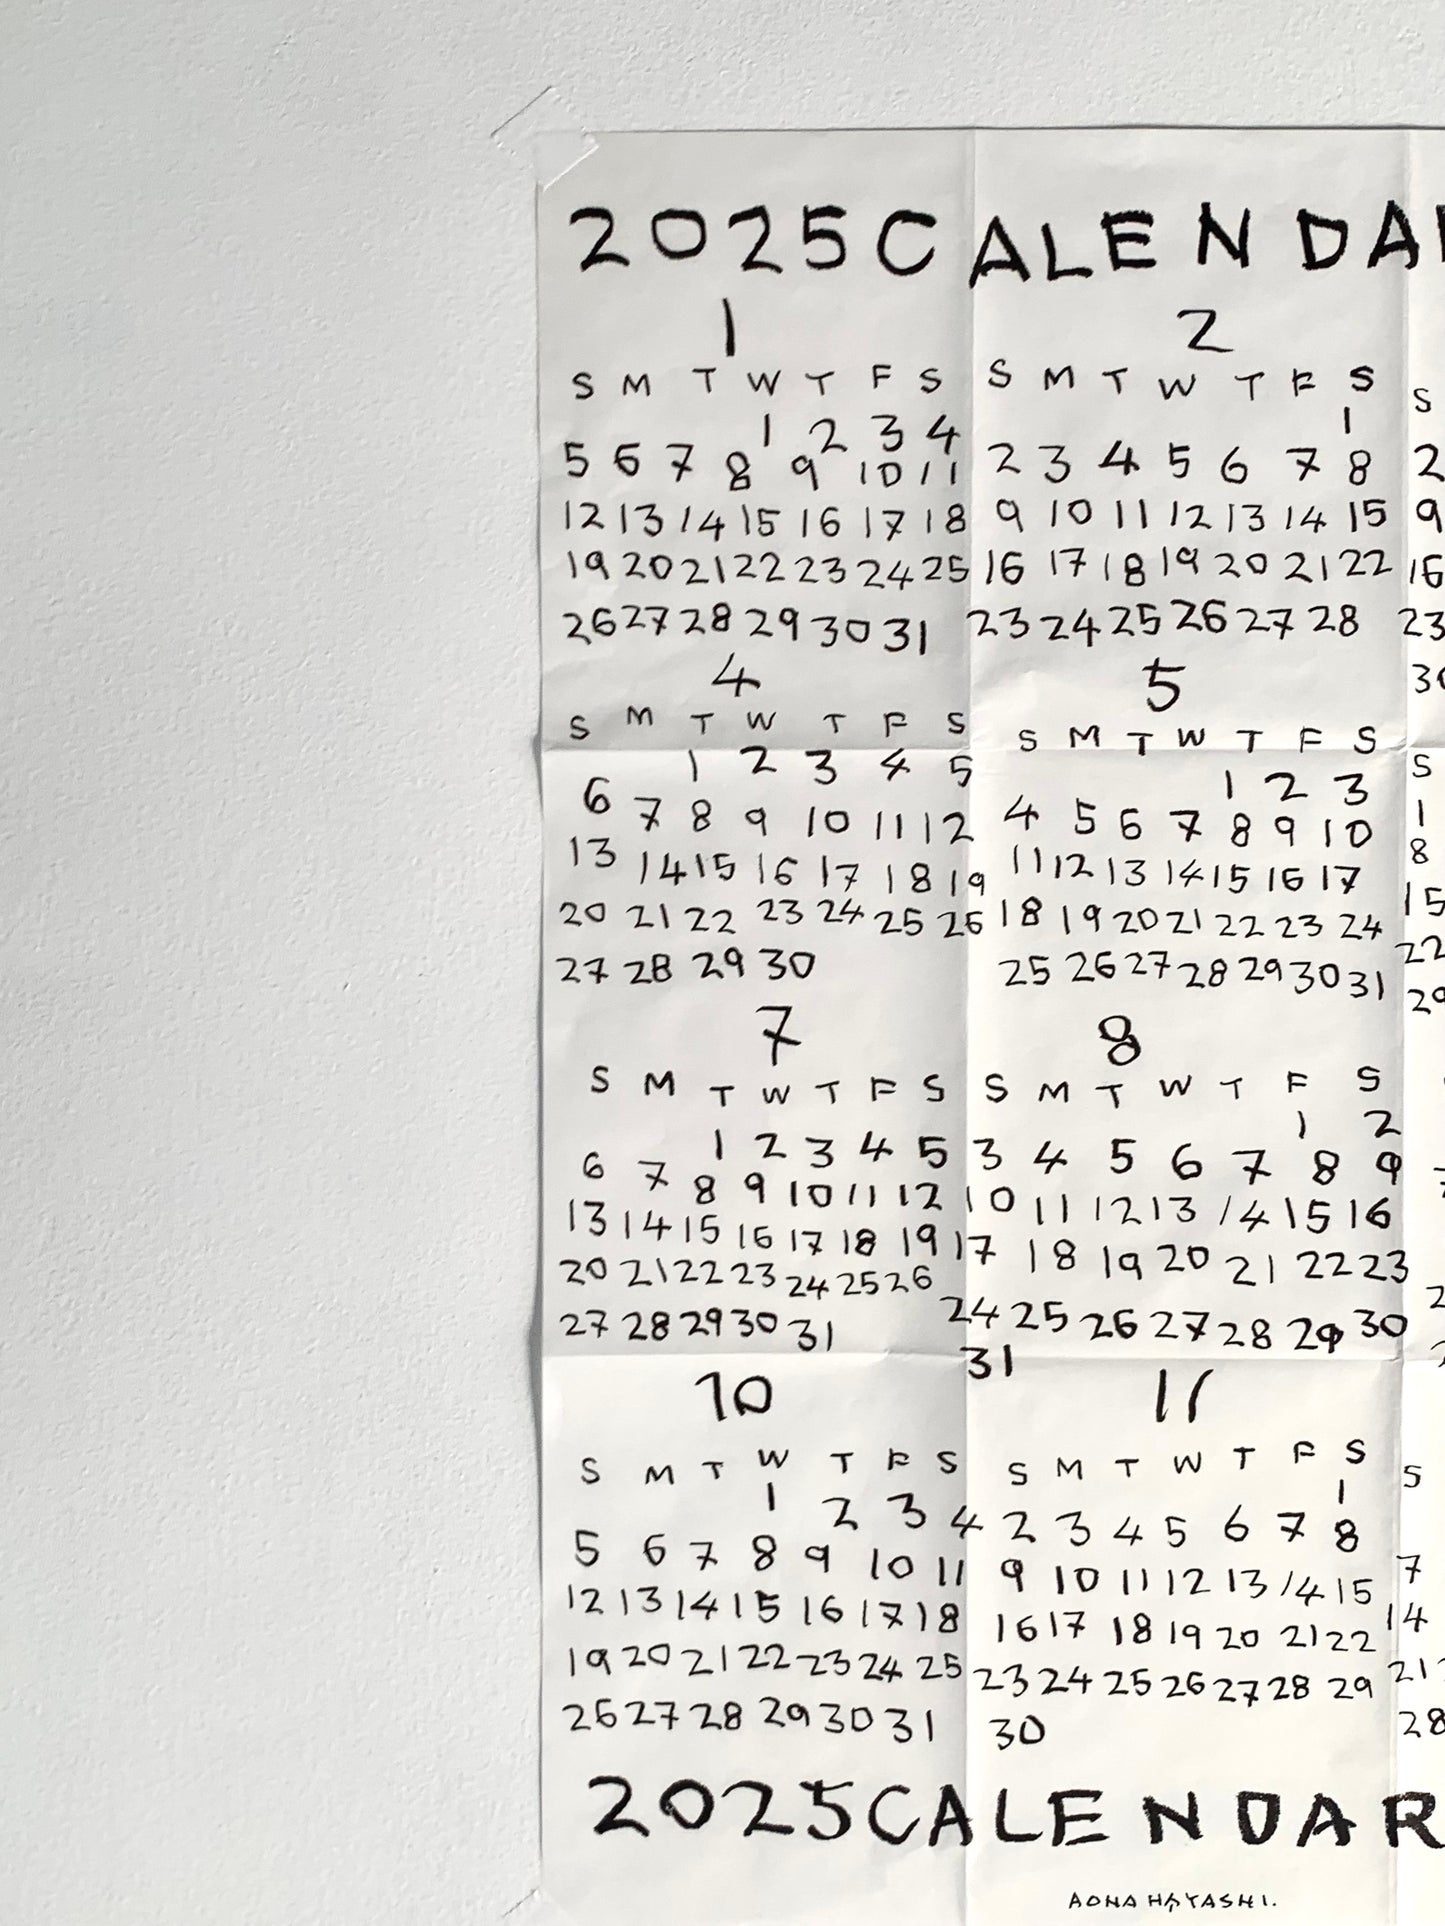 2025 CALENDAR
1
S M T W T F S
1 2 3 4
5 6 7 8 9 10 11
12 13 14 15 16 17 18
19 20 21 22 23 24 25
26 27 28 29 30 31
2
S M T W T F S
1
2 3 4 5 6 7 8
9 10 11 12 13 14 15
16 17 18 19 20 21 22
23 24 25 26 27 28
S
2
9
16
23
30
4
S M T W T F S
1 2 3 4 5
6 7 8 9 10 11 12
13 14 15 16 17 18 19
20 21 22 23 24 25 26
27 28 29 30
5
S M T W T F S
1 2 3
4 5 6 7 8 9 10
11 12 13 14 15 16 17
18 19 20 21 22 23 24
25 26 27 28 29 30 31
S
1
8
15
22
29
7
S M T W T F S
1 2 3 4 5
6 7 8 9 10 11 12
13 14 15 16 17 18 19
20 21 22 23 24 25 26
27 28 29 30 31
8
S M T W T F S
1 2
3 4 5 6 7 8 9
10 11 12 13 14 15 16
17 18 19 20 21 22 23
24 25 26 27 28 29 30
31
10
S M T W T F S
1 2 3 4
5 6 7 8 9 10 11
12 13 14 15 16 17 18
19 20 21 22 23 24 25
26 27 28 29 30 31
11
S M T W T F S
1
2 3 4 5 6 7 8
9 10 11 12 13 14 15
16 17 18 19 20 21 22
23 24 25 26 27 28 29
30
S
7
14
21
28
2025 CALENDAR
AONA HAYASHI.